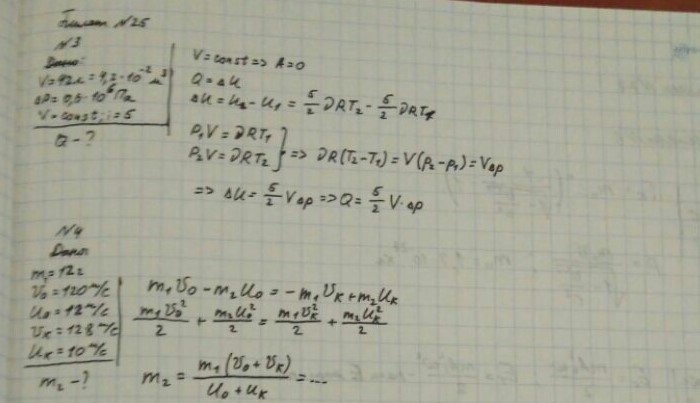 Билет №25
№3
Дано:
V=42л=4,2·10⁻² м³
Δp=0,5·10⁶ Па
V=const, i=5
Q-?
V=const => A=0
Q=ΔU
ΔU=U₂-U₁= 5/2 νRT₂ - 5/2 νRT₁
P₁V=νRT₁
P₂V=νRT₂ } => νR(T₂-T₁)=V(p₂-p₁)=VΔp
=> ΔU= 5/2 VΔp => Q= 5/2 V·Δp
№4
Дано
m₁=12г
υ₀=120 м/с
u₀=12 м/с
υк=128 м/с
uк=10 м/с
m₂-?
m₁υ₀-m₂u₀=-m₁υк+m₂uк
m₁υ₀²/2 + m₂u₀²/2 = m₁υк²/2 + m₂uк²/2
m₂= m₁(υ₀+υк)/(u₀+uк) =...